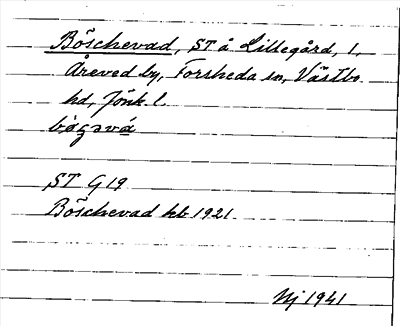 Böschevad, ST å Lillegård, 1,
Åreved by, Forsheda sn, Västbo
hd, Jönk. l.
bǫgɜvá
ST G 19
Böschevad hb 1921
Nj 1941